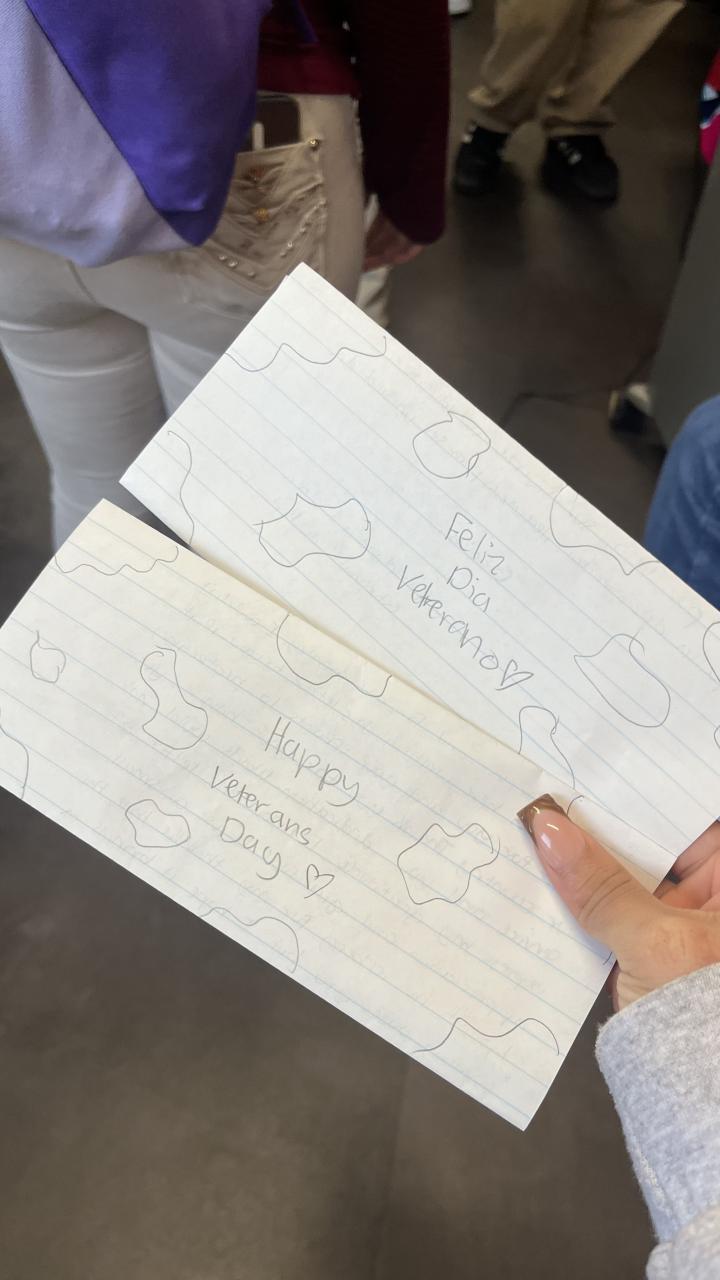 Feliz
Dia
Veterano♡
Happy
Veterans
Day ♡